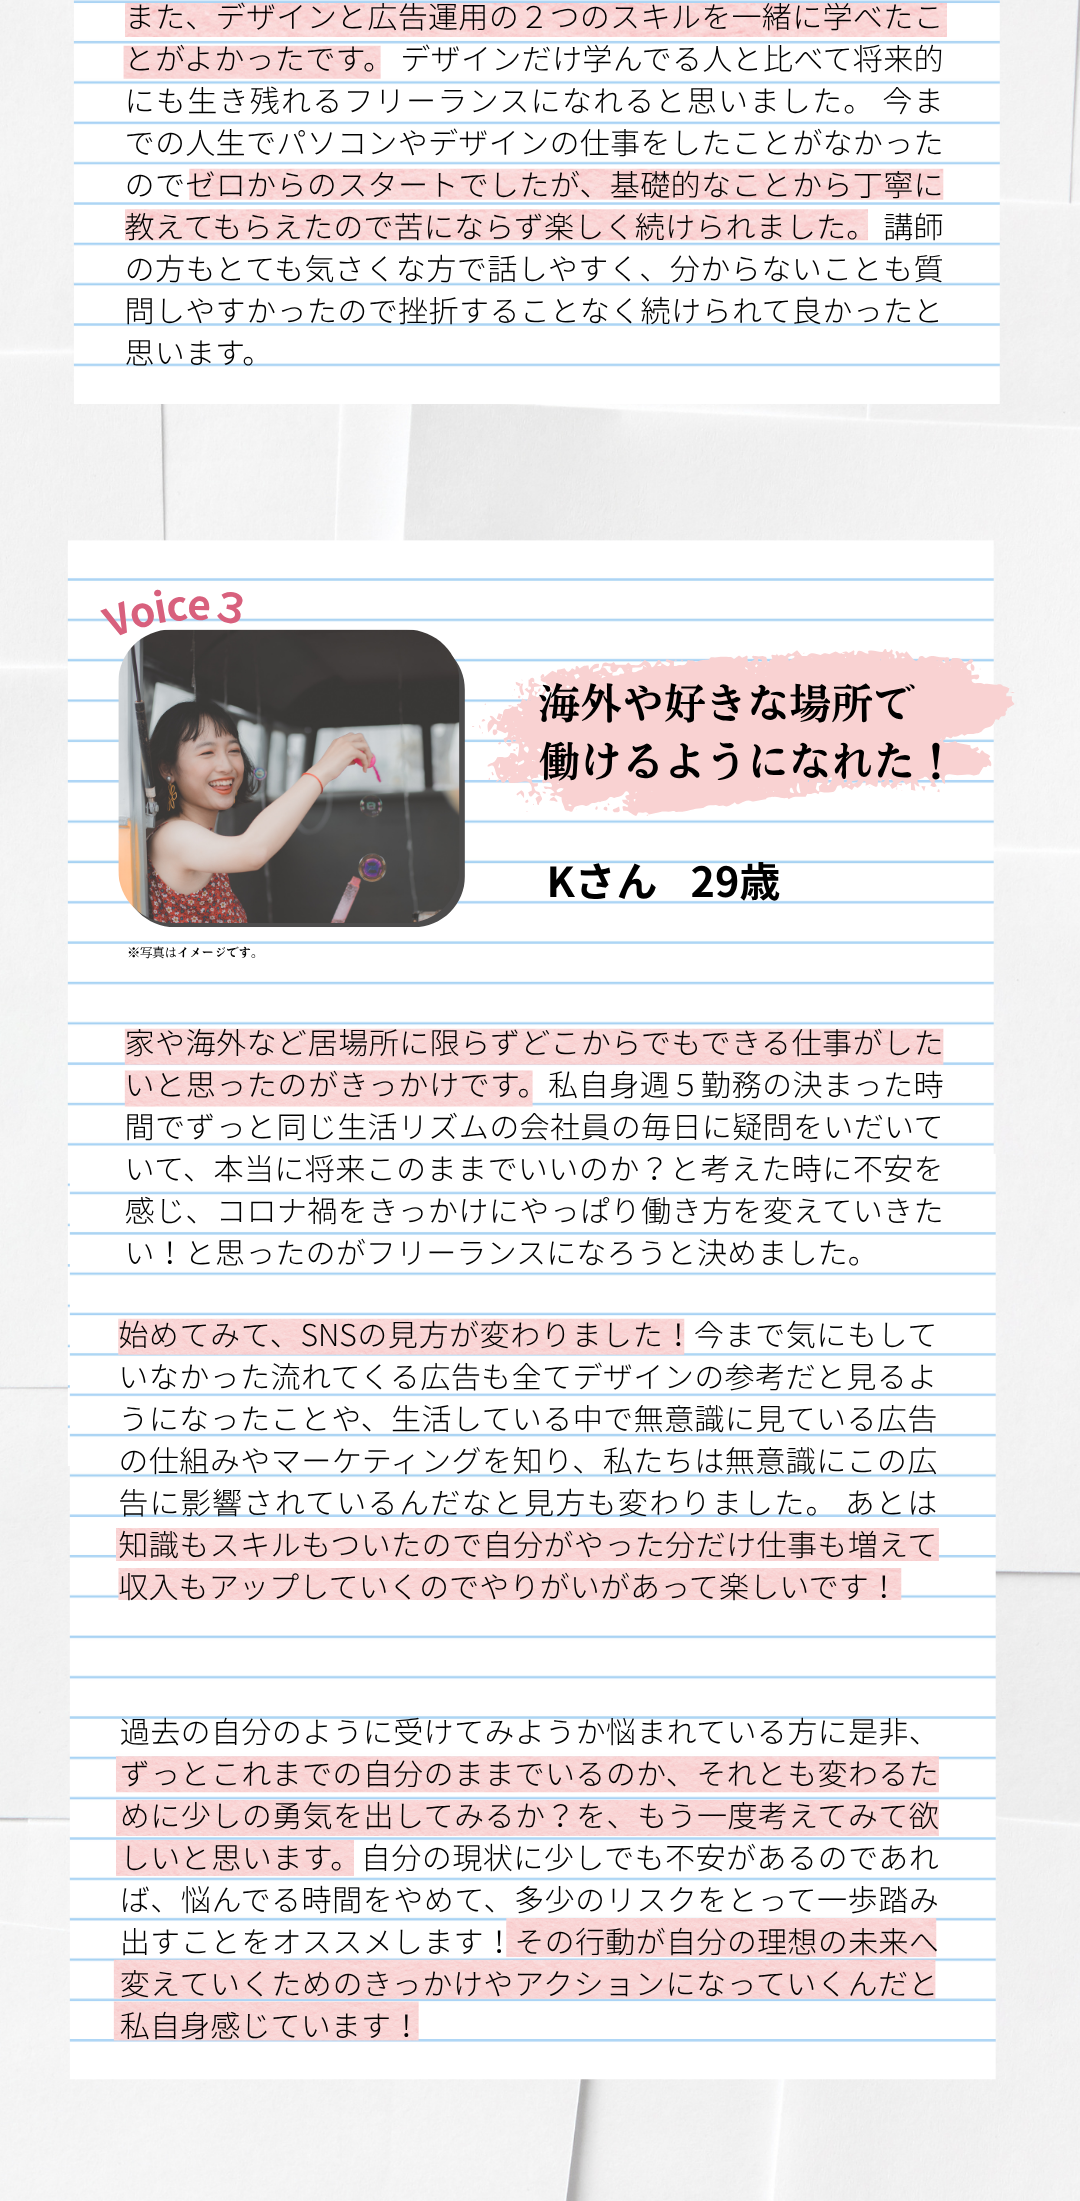 また、デザインと広告運用の２つのスキルを一緒に学べたこ
とがよかったです。 デザインだけ学んでる人と比べて将来的
にも生き残れるフリーランスになれると思いました。 今ま
での人生でパソコンやデザインの仕事をしたことがなかった
のでゼロからのスタートでしたが、基礎的なことから丁寧に
教えてもらえたので苦にならず楽しく続けられました。 講師
の方もとても気さくな方で話しやすく、分からないことも質
問しやすかったので挫折することなく続けられて良かったと
思います。
Voice 3
海外や好きな場所で
働けるようになれた！
Kさん　29歳
※写真はイメージです。
家や海外など居場所に限らずどこからでもできる仕事がした
いと思ったのがきっかけです。 私自身週５勤務の決まった時
間でずっと同じ生活リズムの会社員の毎日に疑問をいだいて
いて、本当に将来このままでいいのか？と考えた時に不安を
感じ、コロナ禍をきっかけにやっぱり働き方を変えていきた
い！と思ったのがフリーランスになろうと決めました。
始めてみて、SNSの見方が変わりました！今まで気にもして
いなかった流れてくる広告も全てデザインの参考だと見るよ
うになったことや、生活している中で無意識に見ている広告
の仕組みやマーケティングを知り、私たちは無意識にこの広
告に影響されているんだなと見方も変わりました。 あとは
知識もスキルもついたので自分がやった分だけ仕事も増えて
収入もアップしていくのでやりがいがあって楽しいです！
過去の自分のように受けてみようか悩まれている方に是非、
ずっとこれまでの自分のままでいるのか、それとも変わるた
めに少しの勇気を出してみるか？を、もう一度考えてみて欲
しいと思います。 自分の現状に少しでも不安があるのであれ
ば、悩んでる時間をやめて、多少のリスクをとって一歩踏み
出すことをオススメします！その行動が自分の理想の未来へ
変えていくためのきっかけやアクションになっていくんだと
私自身感じています！